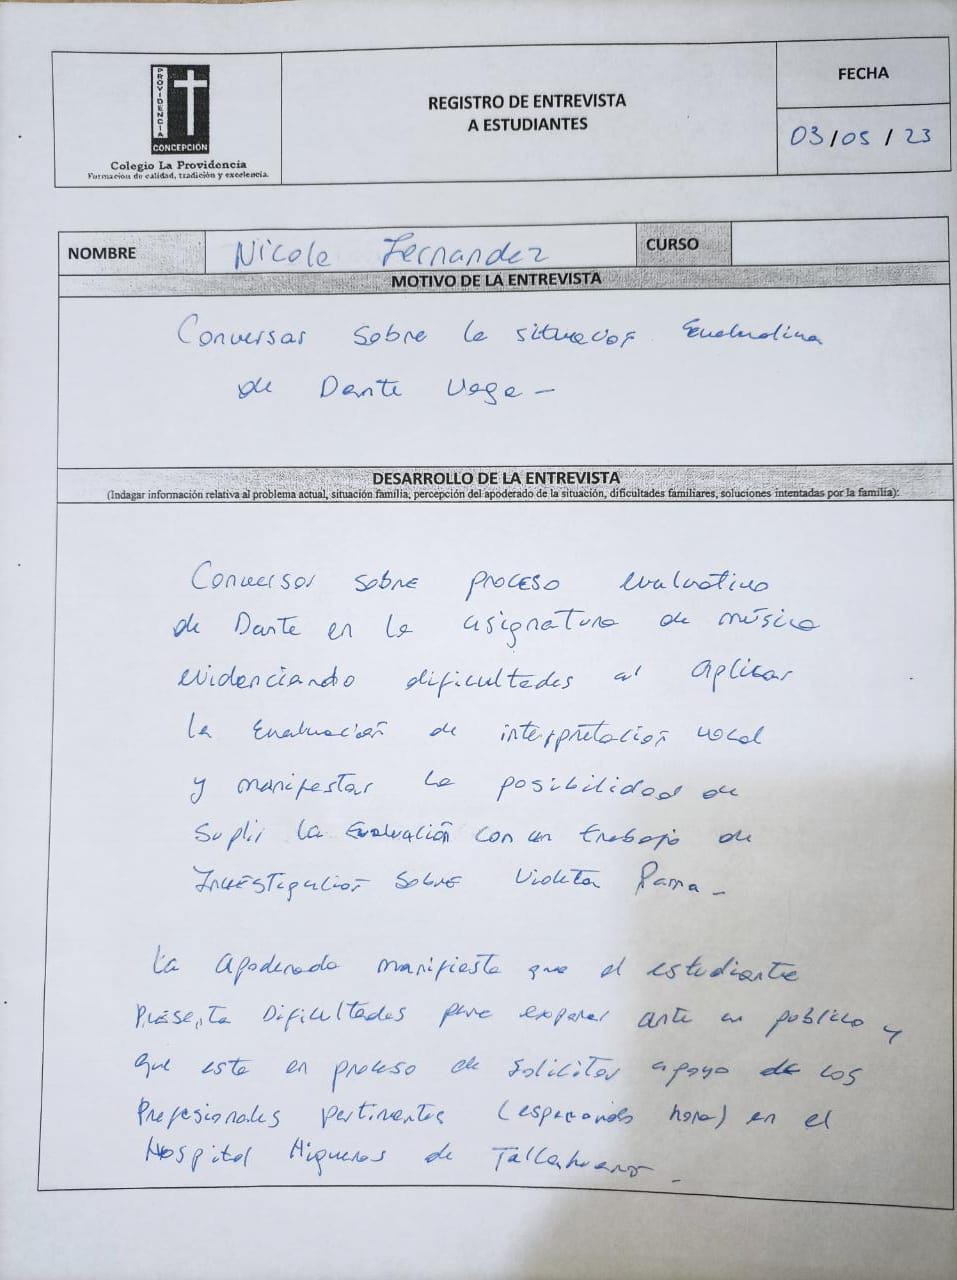 PROVIDENCIA
CONCEPCIÓN
Colegio La Providencia
Formación de calidad, tradición y excelencia.
REGISTRO DE ENTREVISTA
A ESTUDIANTES
FECHA
03/05/23
NOMBRE Nicole Fernandez CURSO
MOTIVO DE LA ENTREVISTA
Conversar sobre la situación Evaluativa
de Dante Vega -
DESARROLLO DE LA ENTREVISTA
(Indagar información relativa al problema actual, situación familia, percepción del apoderado de la situación, dificultades familiares, soluciones intentadas por la familia):
Conversar sobre proceso evaluativo
de Dante en la asignatura de música
evidenciando dificultades al aplicar
la Evaluación de interpretación vocal
y manifestar la posibilidad de
suplir la Evaluación con un trabajo de
Investigación sobre Violeta Parra -
La Apoderada manifiesta que el estudiante
Presenta Dificultades para exponer ante un publico y
que esta en proceso de solicitar apoyo de los
Prefesionales pertinentes (esperando hora) en el
Hospital Higueras de Talcahuano -